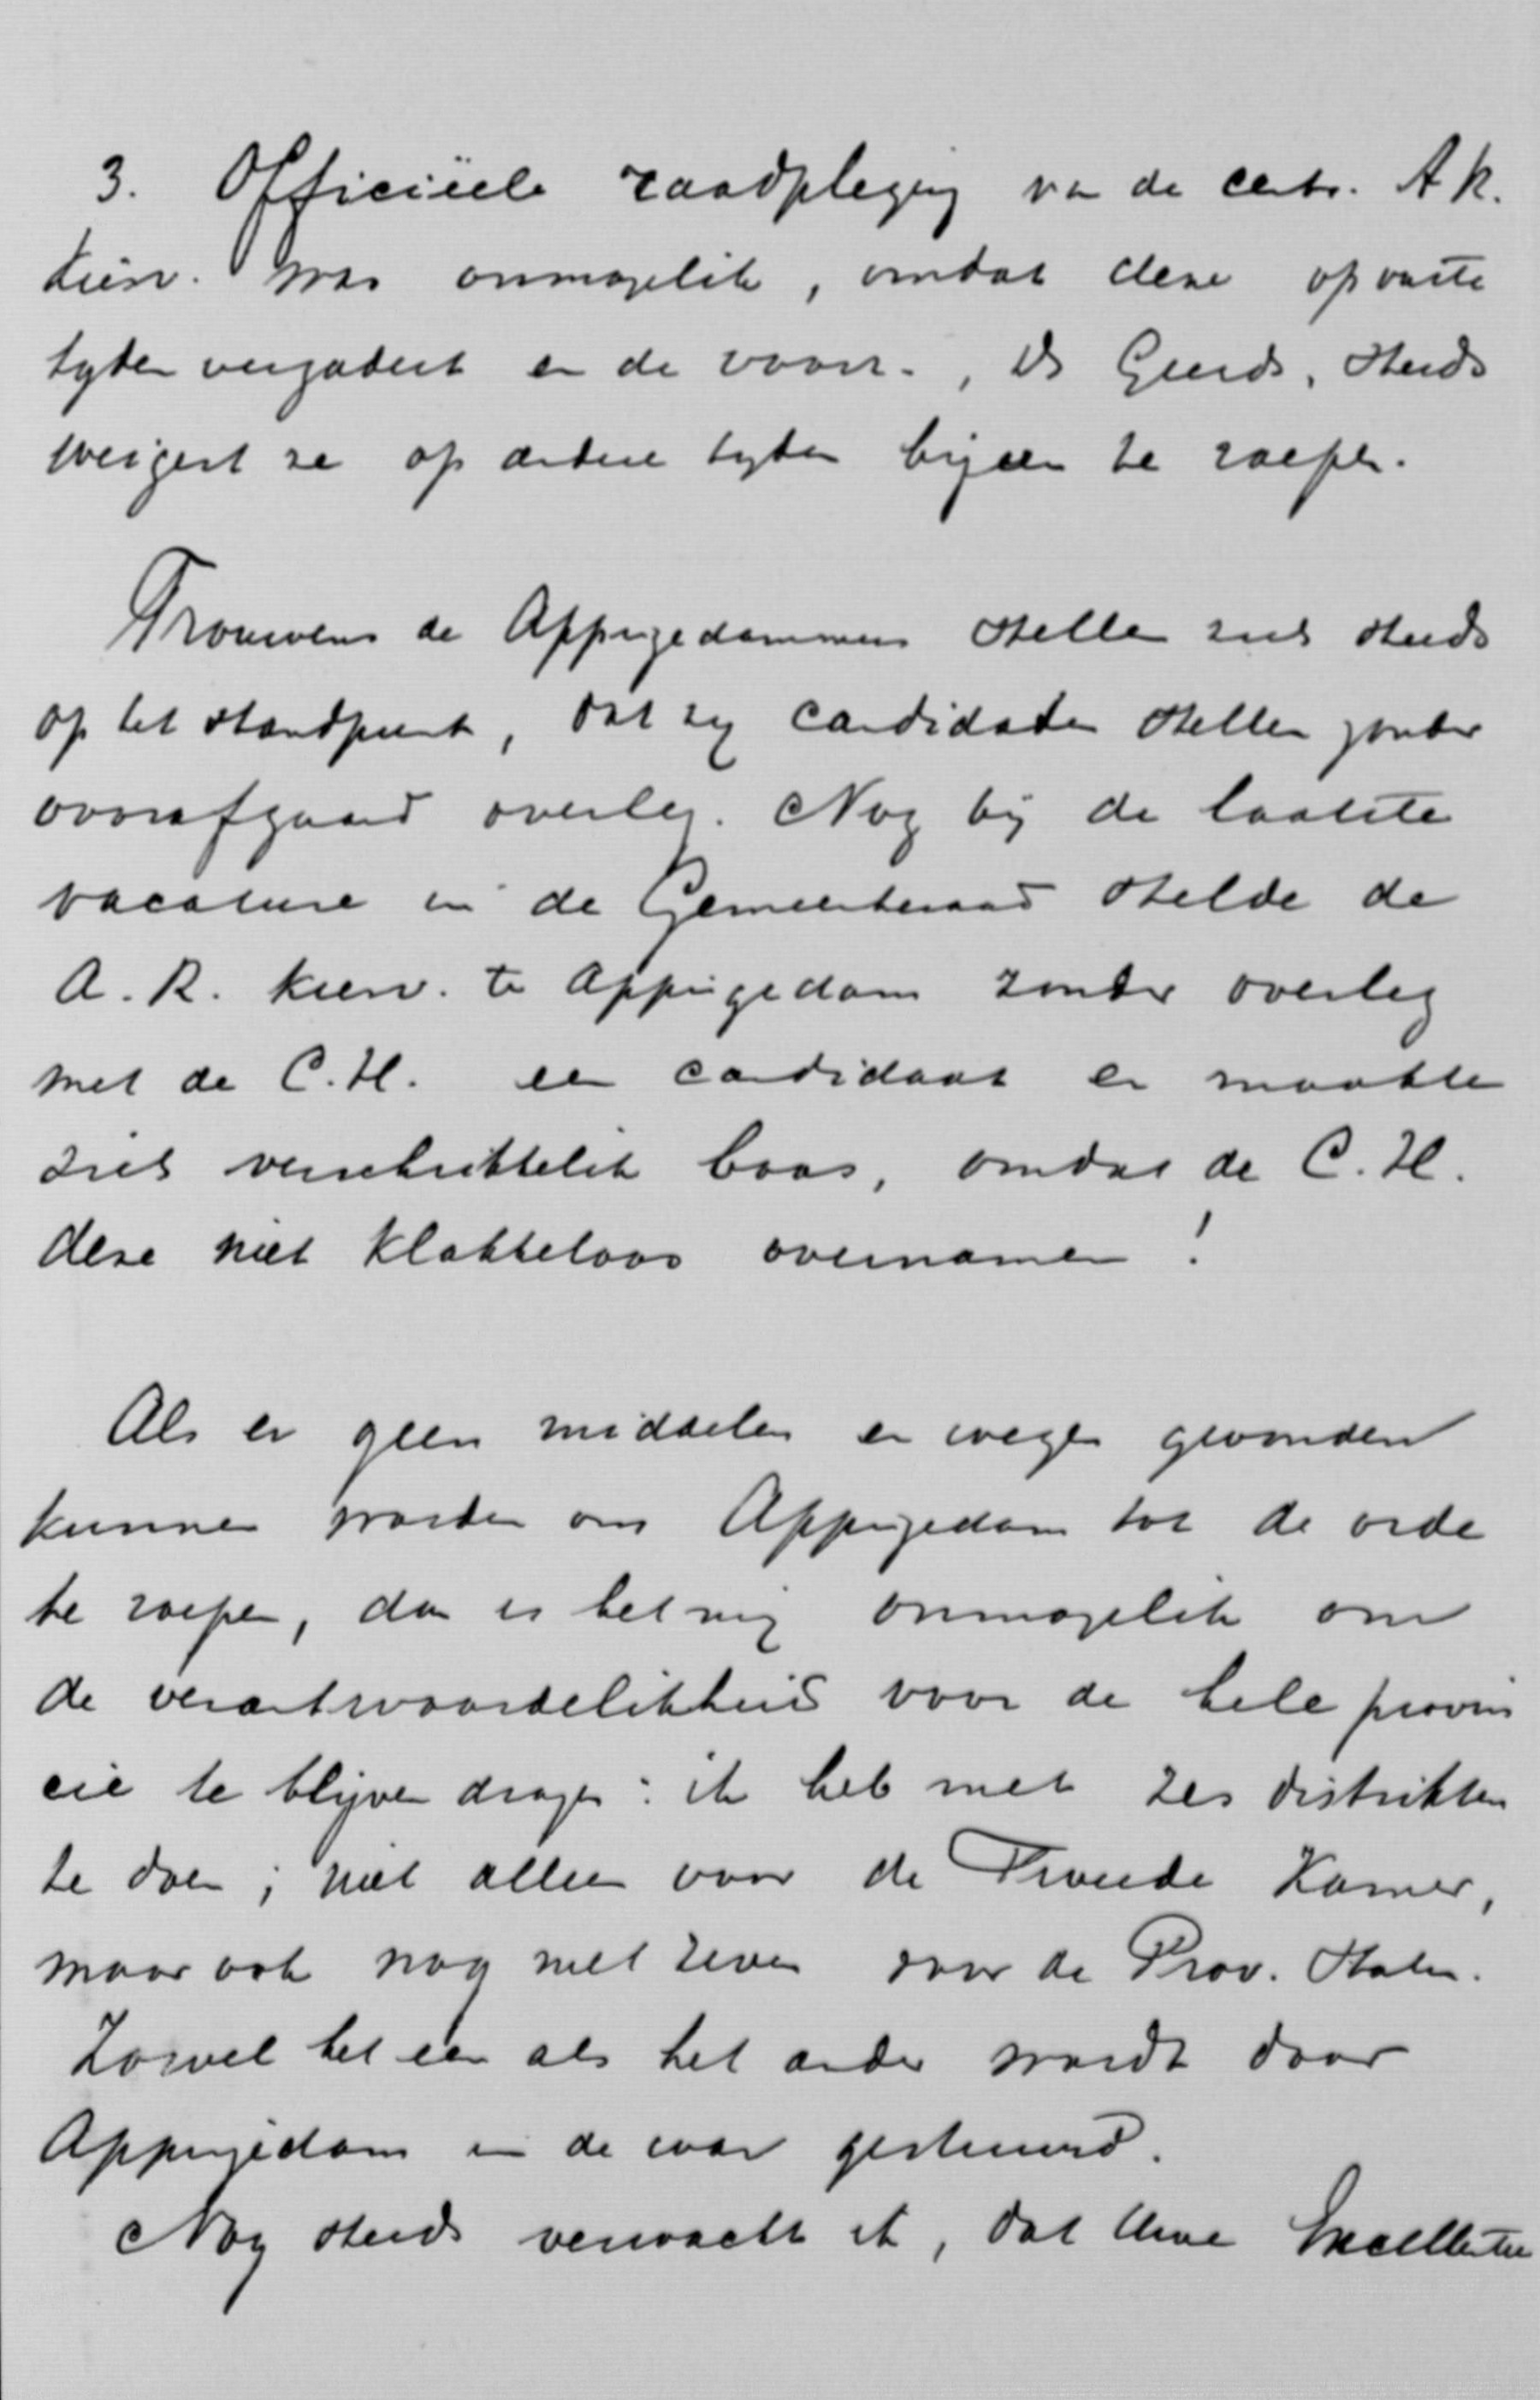 3. Officiëele raadpleging van de centr. A R.
kiesv. was onmogelik, omdat deze op vaste
tyden vergadert en de voorz., Ds Geerds, steeds
weigert ze op andere tyden bijeen te roepen.
Trouwens de Appingedammers stellen zich steeds
op het standpunt, dat zy candidaten stellen zonder
voorafgaand overleg. Nog bij de laatste
vacature in de Gemeenteraad stelde de
A. R. kiesv. te Appingedam zonder overleg
met de C. H. een candidaat en maakte
zich verschrikkelik boos, omdat de C. H.
deze niet klakkeloos overnamen!
Als er geen middelen en wegen gevonden
kunnen worden om Appingedam tot de orde
te roepen, dan is het mij onmogelik om
de verantwoordelikheid voor de hele provin
cie te blijven dragen: ik heb met zes distrikten
te doen; niet alleen voor de Tweede Kamer,
maar ook nog met zeven voor de Prov. Staten.
Zowel het een als het ander wordt door
Appingedam in de war gestuurd.
Nog steeds verwacht ik, dat Uwe Excellentie